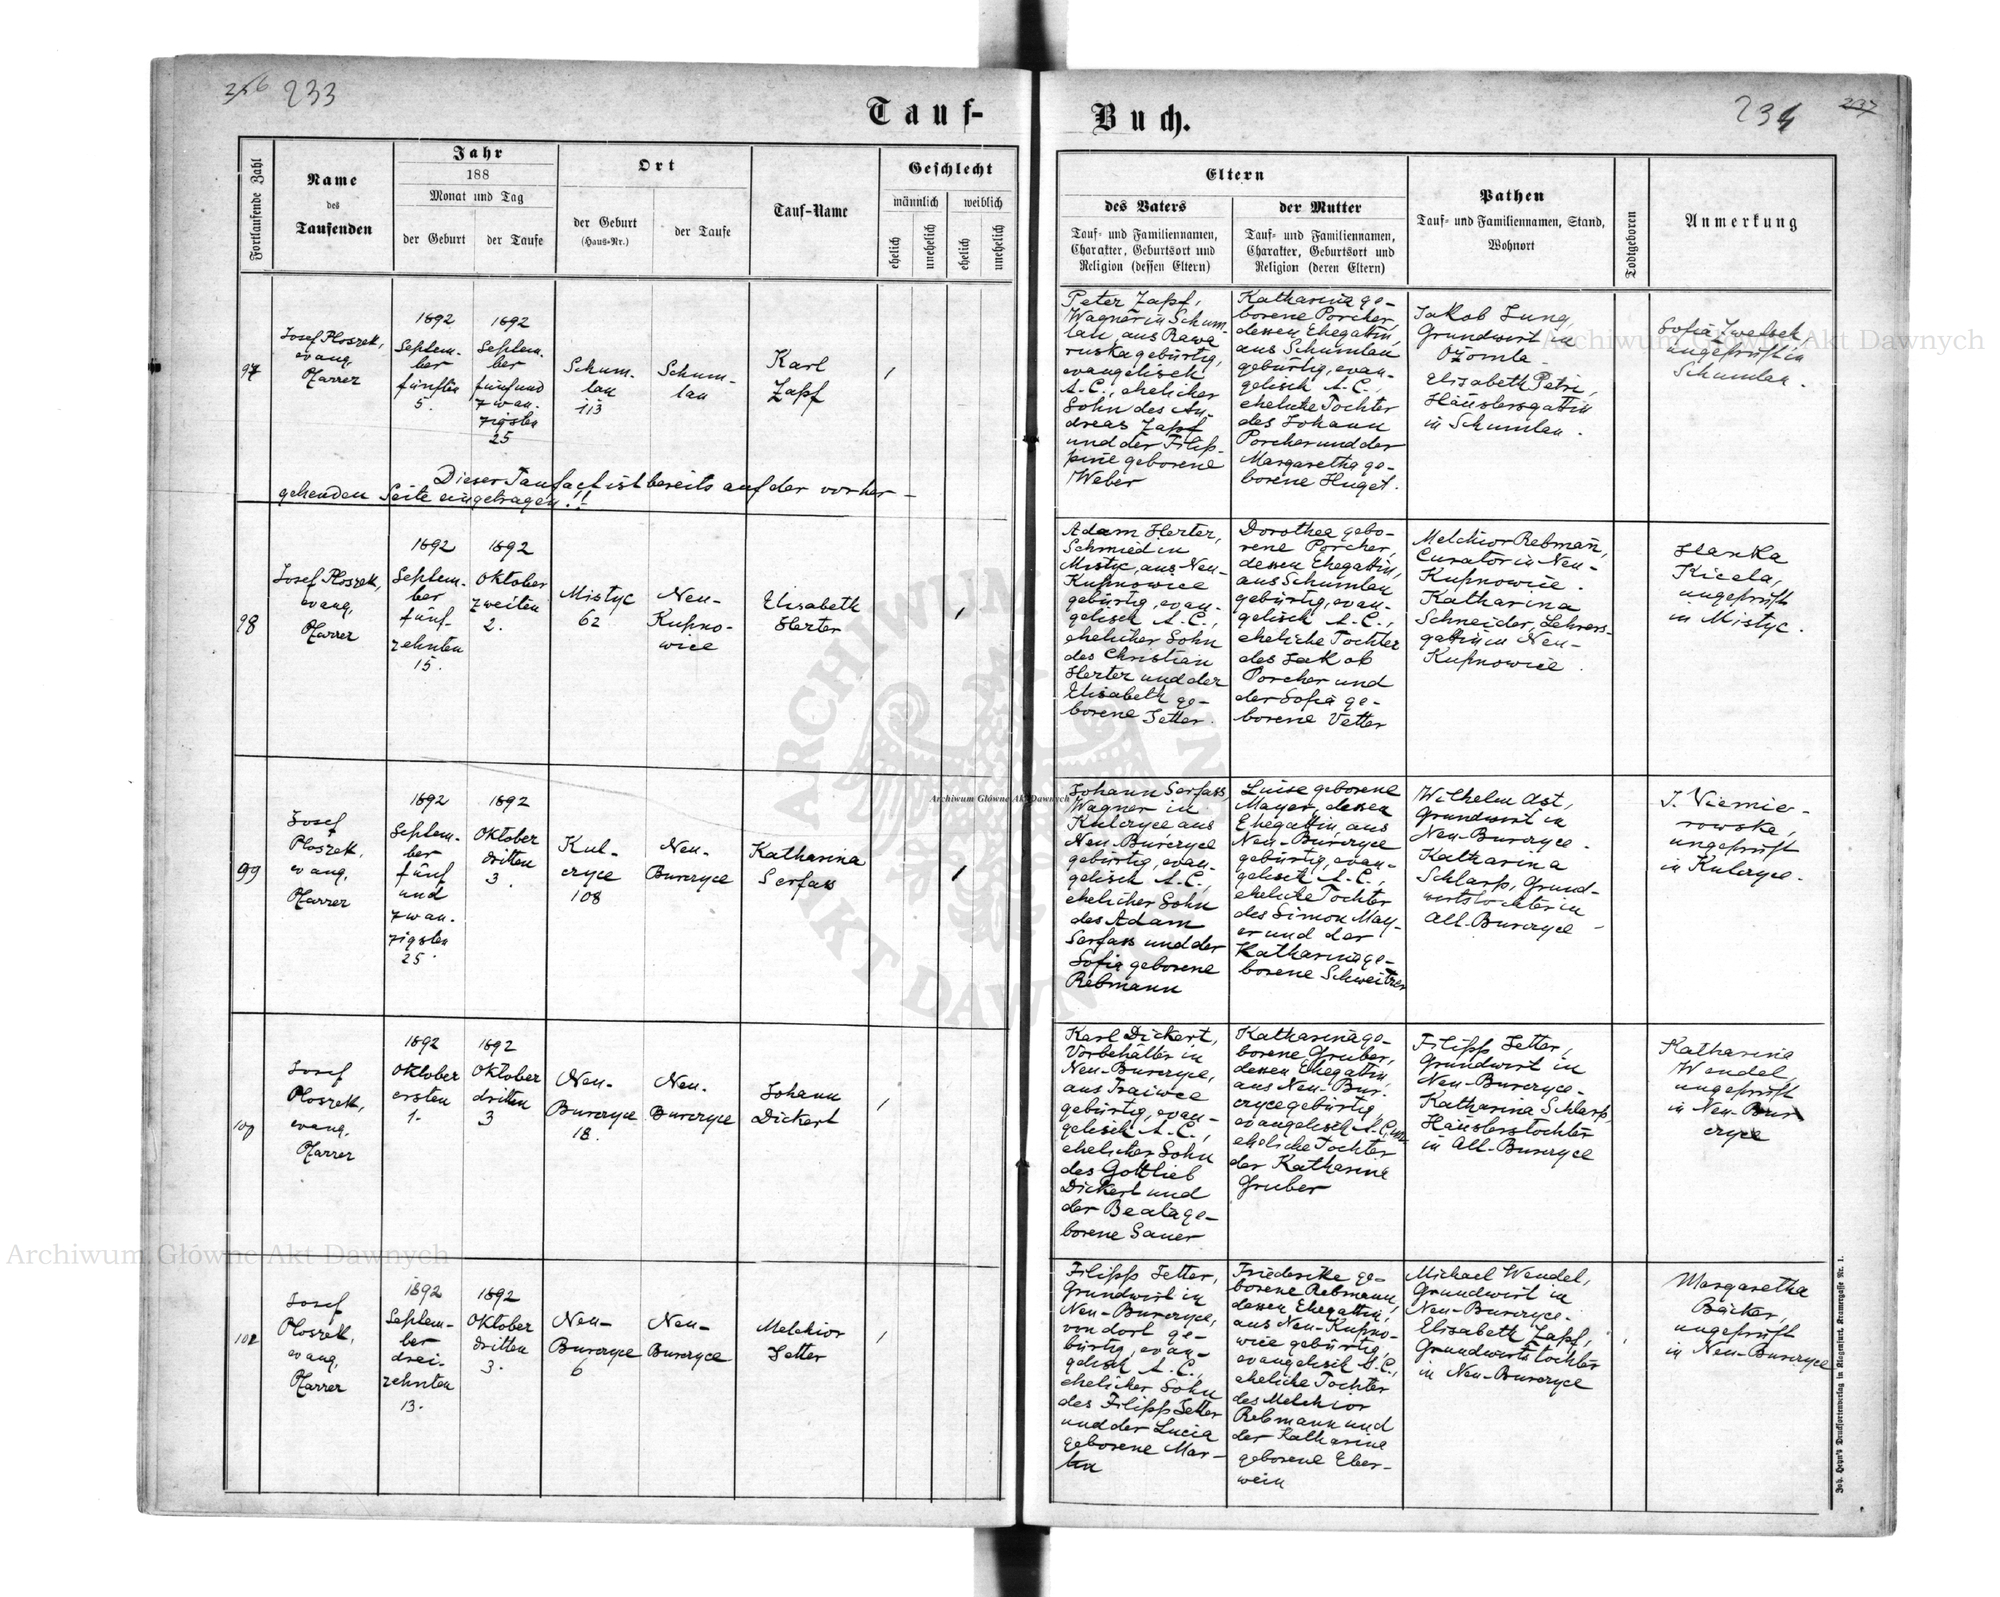 256 233
Tauf-
Buch.
234 237
Fortlaufende Zahl
Name
des
Taufenden
Jahr
188
Monat und Tag
der Geburt
der Taufe
Ort
der Geburt
(Haus-Nr.)
der Taufe
Tauf-Name
Geschlecht
männlich
weiblich
ehelich
unehelich
ehelich
unehelich
Eltern
des Vaters
Tauf- und Familiennamen,
Charakter, Geburtsort und
Religion (dessen Eltern)
der Mutter
Tauf- und Familiennamen,
Charakter, Geburtsort und
Religion (deren Eltern)
Pathen
Tauf- und Familiennamen, Stand,
Wohnort
Todtgeboren
Anmerkung
97
Josef Ploszek,
evang.
Pfarrer
1892
Septem-
ber
fünften
5.
1892
Septem-
ber
fünfund
zwan-
zigsten
25
Schum-
lau
113
Schum-
lau
Karl
Zapf
/
Peter Zapf,
Wagner in Schum-
lau, aus Rawa
ruska gebürtig,
evangelisch
A.C., ehelicher
Sohn des An-
dreas Zapf
und der Filip-
pine geborene
Weber
Katharina ge-
borene Porcher,
dessen Ehegattin,
aus Schumlau
gebürtig, evan-
gelisch A.C.,
eheliche Tochter
des Johann
Porcher und der
Margaretha ge-
borene Huget.
Jakob Jung,
Grundwirt in
Ożomla
Elisabeth Petri,
Häuslersgattin
in Schumlau.
Sofia Zwelsch
ungeprüft in
Schumlau.
Dieser Taufact ist bereits auf der vorher-
gehenden Seite eingetragen!!
98
Josef Ploszek,
evang.
Pfarrer
1892
Septem-
ber
fünf-
zehnten
15.
1892
Oktober
zweiten
2.
Mistyc
62
Neu-
Kupno-
wice
Elisabeth
Herter
/
Adam Herter,
Schmied in
Mistyc, aus Neu-
Kupnowice
gebürtig, evan-
gelisch A.C.,
ehelicher Sohn
des Christian
Herter und der
Elisabeth ge-
borene Jetter.
Dorothea gebo-
rene Porcher,
dessen Ehegattin,
aus Schumlau
gebürtig, evan-
gelisch A.C.,
eheliche Tochter
des Jakob
Porcher und
der Sofia ge-
borene Vetter
Melchior Rebmañ,
Curator in Neu-
Kupnowice.
Katharina
Schneider, Lehrers-
gattin in Neu-
Kupnowice.
Hanka
Kicela,
ungeprüft
in Mistyc.
99
Josef
Ploszek,
evang.
Pfarrer
1892
Septem-
ber
fünf
und
zwan-
zigsten
25.
1892
Oktober
dritten
3.
Kul-
czyce
108
Neu-
Burczyce
Katharina
Serfass
/
Johann Serfass,
Wagner in
Kulczyce aus
Neu-Burczyce
gebürtig, evan-
gelisch A.C.,
ehelicher Sohn
des Adam
Serfass und der
Sofia geborene
Rebmann
Luise geborene
Mayer, dessen
Ehegattin, aus
Neu-Burczyce
gebürtig, evan-
gelisch A.C.,
eheliche Tochter
des Simon May-
er und der
Katharina ge-
borene Schweitzer
Wilhelm Ast,
Grundwirt in
Neu-Burczyce.
Katharina
Schlarp, Grund-
wirtstochter in
Alt-Burczyce
J. Niemie-
rowska,
ungeprüft
in Kulczyce.
100
Josef
Ploszek,
evang.
Pfarrer
1892
Oktober
ersten
1.
1892
Oktober
dritten
3
Neu-
Burczyce
18.
Neu-
Burczyce
Johann
Dickert
/
Karl Dickert,
Vorbehälter in
Neu-Burczyce,
aus Josefsberg
gebürtig, evan-
gelisch A.C.,
ehelicher Sohn
des Gottlieb
Dickert und
der Beata ge-
borene Sauer
Katharina ge-
borene Gruber,
dessen Ehegattin,
aus Neu-Bur-
czyce gebürtig,
evangelisch A.C.,
eheliche Tochter
der Katharina
Gruber
Filipp Jetter,
Grundwirt in
Neu-Burczyce.
Katharina Schlarp,
Häuslerstochter
in Alt-Burczyce
Katharina
Wendel,
ungeprüft
in Neu-Bur
czyce
Josef
Ploszek,
evang.
Pfarrer
1892
Septem-
ber
drei-
zehnten
13.
1892
Oktober
dritten
3.
Neu-
Burczyce
6
Neu-
Burczyce
Melchior
Jetter
/
Filipp Jetter,
Grundwirt in
Neu-Burczyce,
von dort ge-
bürtig, evan-
gelisch A.C.,
ehelicher Sohn
des Filipp Jetter
und der Lucia
geborene Mar-
tin
Friederike ge-
borene Rebmann,
dessen Ehegattin,
aus Neu-Kupno-
wice gebürtig,
evangelisch A.C.,
eheliche Tochter
des Melchior
Rebmann und
der Katharine
geborene Eber-
wein
Michael Wendel,
Grundwirt in
Neu-Burczyce.
Elisabeth Zapf,
Grundwirtstochter
in Neu-Burczyce
Margaretha
Bäcker,
ungeprüft
in Neu-Burczyce
Joh. Heyn's Drucksortenverlag in Klagenfurt, Kramergasse Nr. 1.
Archiwum Główne Akt Dawnych
Archiwum Główne Akt Dawnych
Archiwum Główne Akt Dawnych